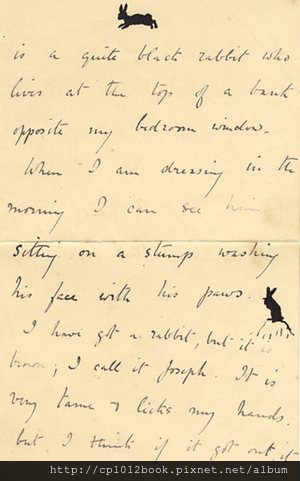 is a quite black rabbit who
lives at the top of a bank
opposite my bedroom window.
When I am dressing in the
morning I can see him
sitting on a stump washing
his face with his paws.
I have got a rabbit, but it is
brown; I call it Joseph. It is
very tame & licks my hands.
but I think if it got out it
http://cp1012book.pixnet.net/album